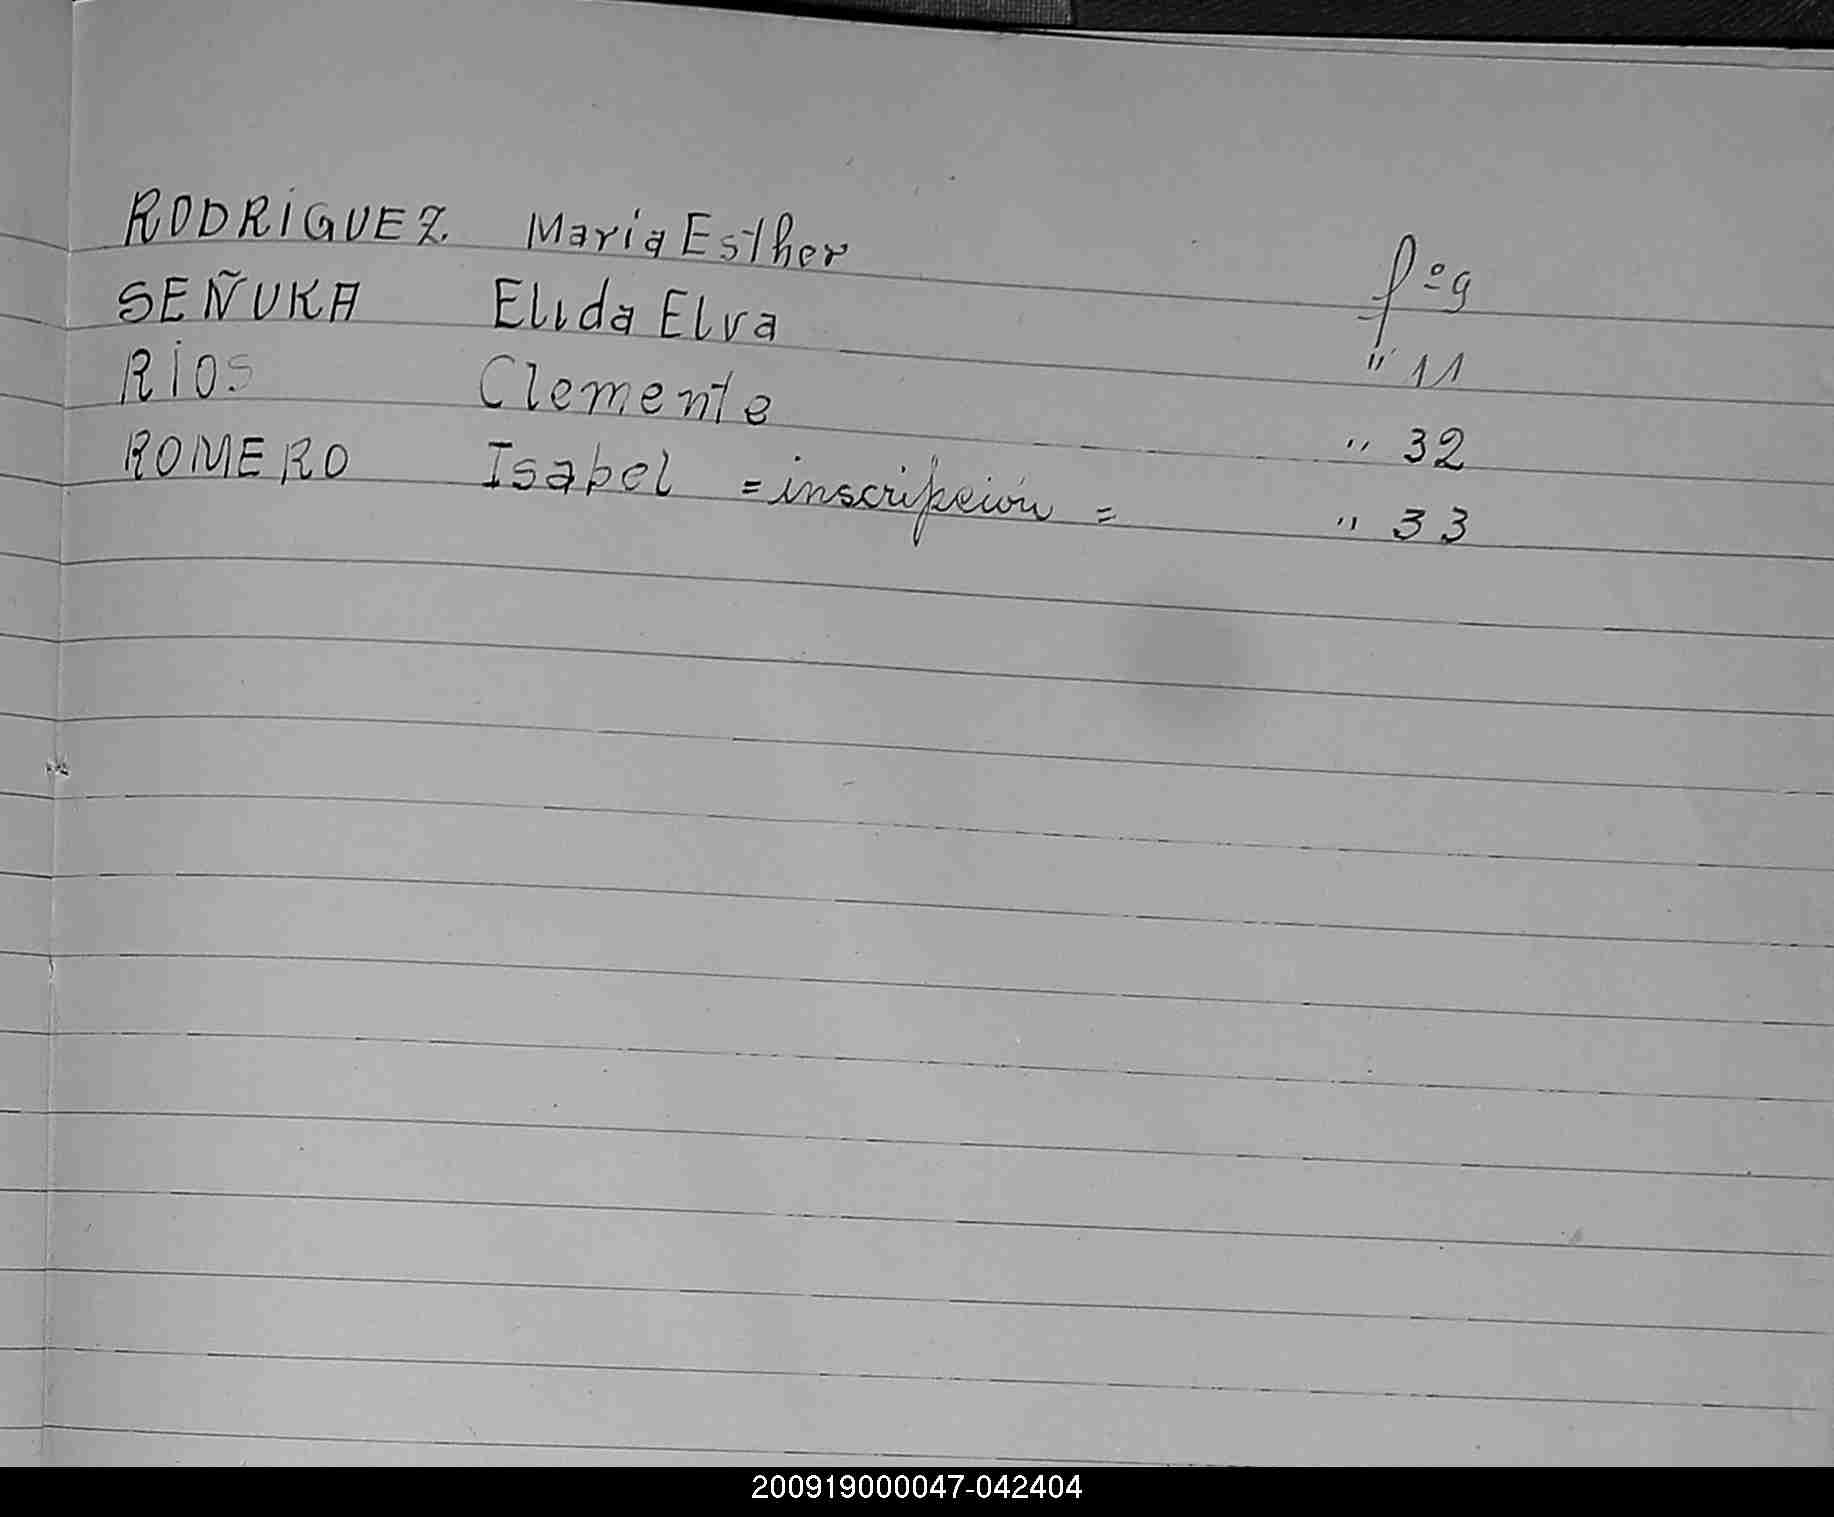 RODRIGUEZ. Maria Esther fº 9
SEÑUKA Elida Elva " 11
RIOS Clemente " 32
ROMERO Isabel = inscripción = " 33
200919000047-042404